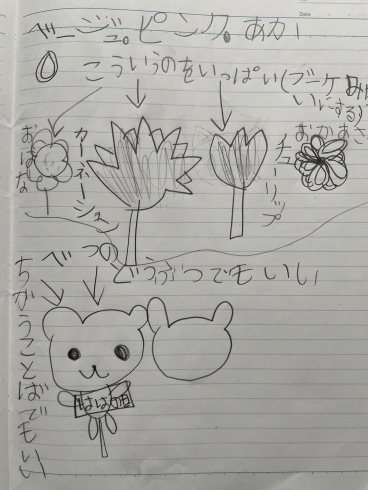 ベージュ。ピンク。あか
こういうのをいっぱい(ブーケみた
いにする)
おはな
カーネーション
チューリップ
おかあさ
べつの
どうぶつでもいい
ちがうことばでもいい
ははの日